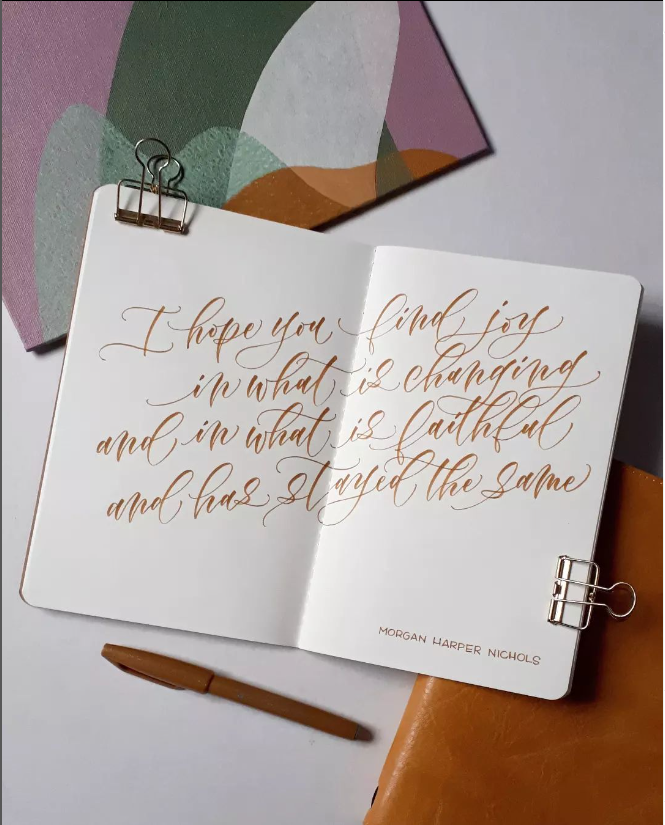 I hope you find joy
in what is changing
and in what is faithful
and has stayed the same
MORGAN HARPER NICHOLS